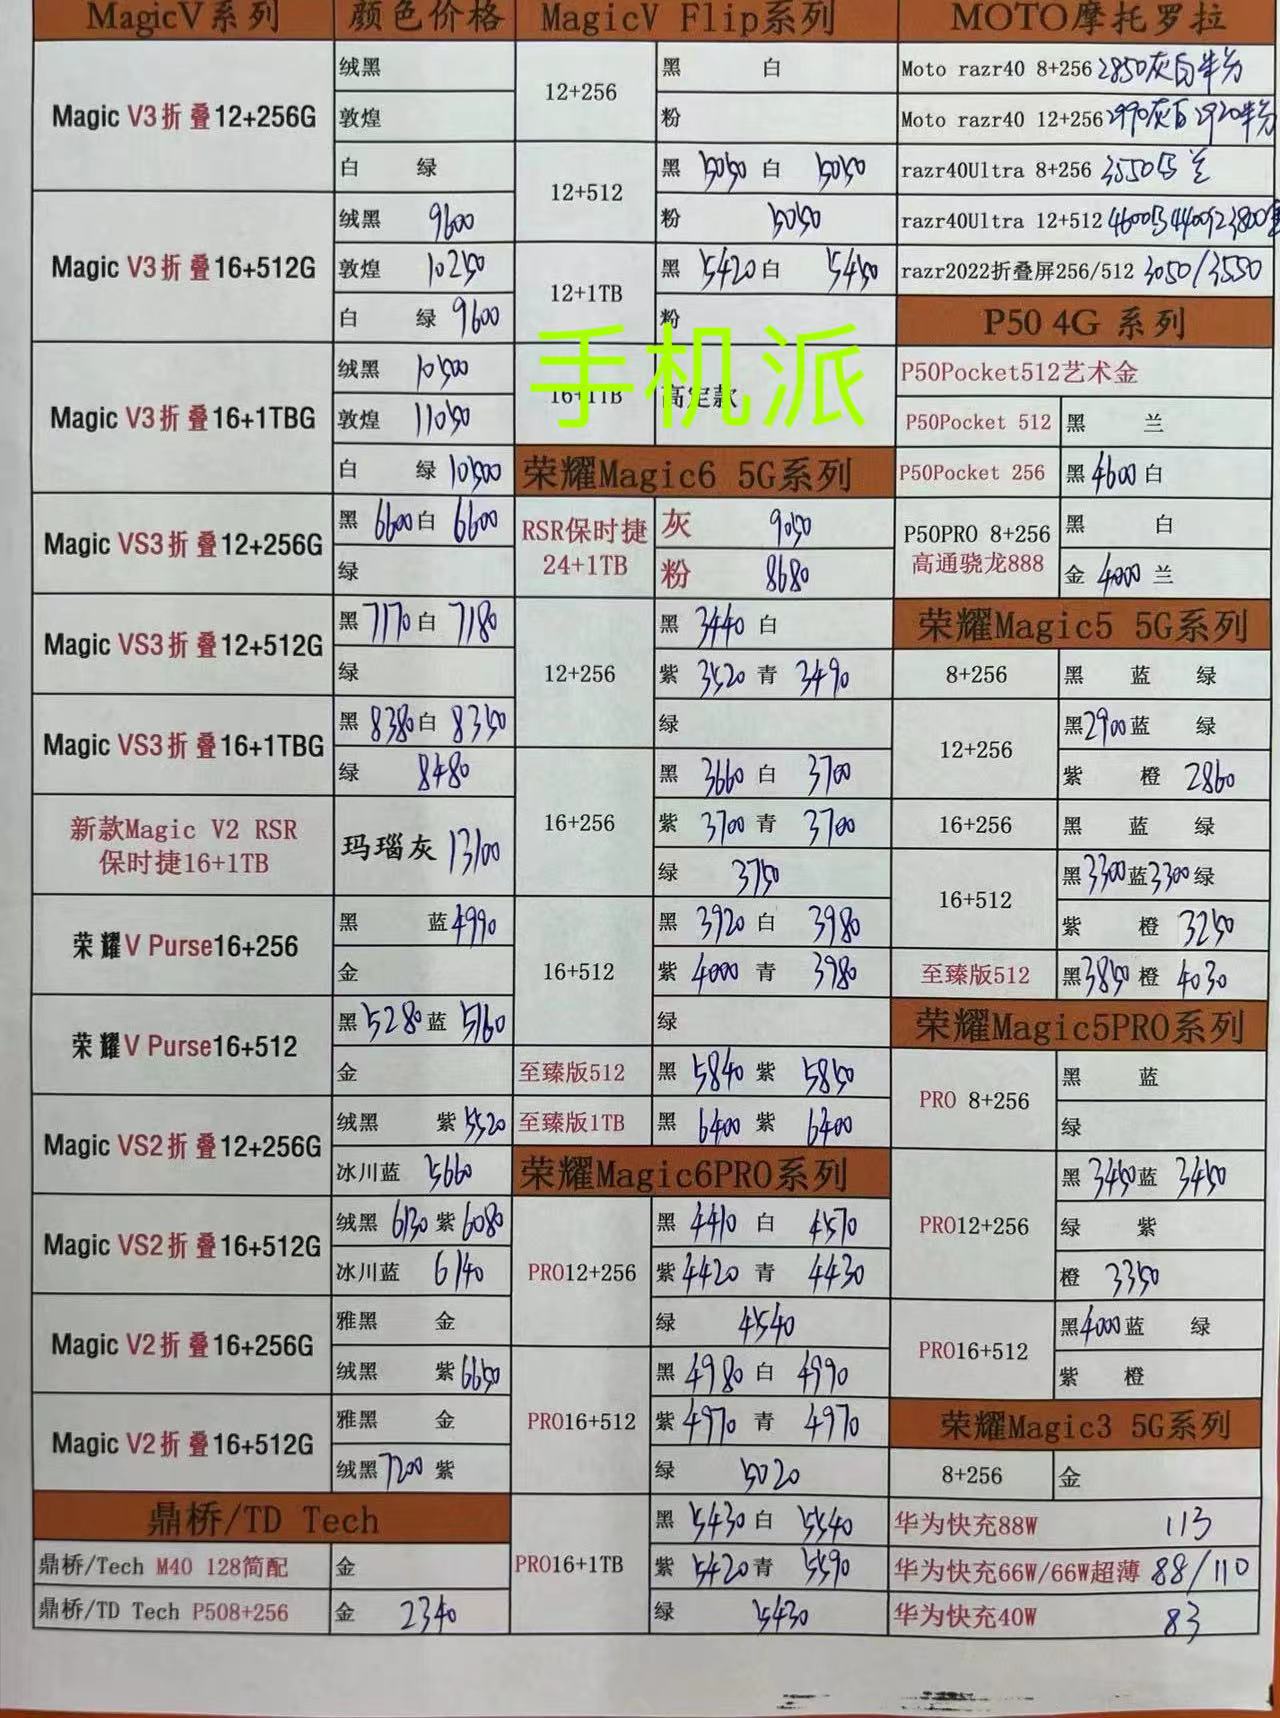 MagicV系列 颜色价格
Magic V3折叠12+256G 绒黑
敦煌
白 绿
Magic V3折叠16+512G 绒黑 9600
敦煌 10250
白 绿 9600
Magic V3折叠16+1TBG 绒黑 10500
敦煌 11050
白 绿 10500
Magic VS3折叠12+256G 黑 6600 白 6600
绿
Magic VS3折叠12+512G 黑 7170 白 7180
绿
Magic VS3折叠16+1TBG 黑 8380 白 8350
绿 8480
新款Magic V2 RSR
保时捷16+1TB 玛瑙灰 13100
荣耀V Purse16+256 黑 蓝 4990
金
荣耀V Purse16+512 黑 5280 蓝 5160
金
Magic VS2折叠12+256G 绒黑 紫 5520
冰川蓝 5660
Magic VS2折叠16+512G 绒黑 6130 紫 6080
冰川蓝 6140
Magic V2折叠16+256G 雅黑 金
绒黑 紫 6650
Magic V2折叠16+512G 雅黑 金
绒黑 7200 紫
鼎桥/TD Tech
鼎桥/Tech M40 128简配 金
鼎桥/TD Tech P508+256 金 2340
MagicV Flip系列
12+256 黑 白
粉
12+512 黑 5050 白 5050
粉 5050
12+1TB 黑 5420 白 5450
粉
16+1TB 高定款
手机派
荣耀Magic6 5G系列
RSR保时捷 灰 9050
24+1TB 粉 8680
12+256 黑 3440 白
紫 3520 青 3490
绿
16+256 黑 3660 白 3700
紫 3700 青 3700
绿 3750
16+512 黑 3920 白 3980
紫 4000 青 3980
绿
至臻版512 黑 5840 紫 5850
至臻版1TB 黑 6400 紫 6400
荣耀Magic6PRO系列
PRO12+256 黑 4410 白 4570
紫 4420 青 4430
绿 4540
PRO16+512 黑 4980 白 4990
紫 4970 青 4970
绿 5020
PRO16+1TB 黑 5430 白 5540
紫 5420 青 5590
绿 5430
MOTO摩托罗拉
Moto razr40 8+256 2850灰白
Moto razr40 12+256 2990灰白 2920
razr40Ultra 8+256 3550
razr40Ultra 12+512 4600 4400 3800
razr2022折叠屏256/512 3050/3550
P50 4G 系列
P50Pocket512艺术金
P50Pocket 512 黑 兰
P50Pocket 256 黑 4600 白
P50PRO 8+256 黑 白
高通骁龙888 金 4000 兰
荣耀Magic5 5G系列
8+256 黑 蓝 绿
12+256 黑 2900 蓝 绿
紫 橙 2860
16+256 黑 蓝 绿
16+512 黑 3300 蓝 3300 绿
紫 橙 3250
至臻版512 黑 3850 橙 4030
荣耀Magic5PRO系列
PRO 8+256 黑 蓝
绿
PRO12+256 黑 3450 蓝 3450
绿 紫
橙 3350
PRO16+512 黑 4000 蓝 绿
紫 橙
荣耀Magic3 5G系列
8+256 金
华为快充88W 113
华为快充66W/66W超薄 88/110
华为快充40W 83